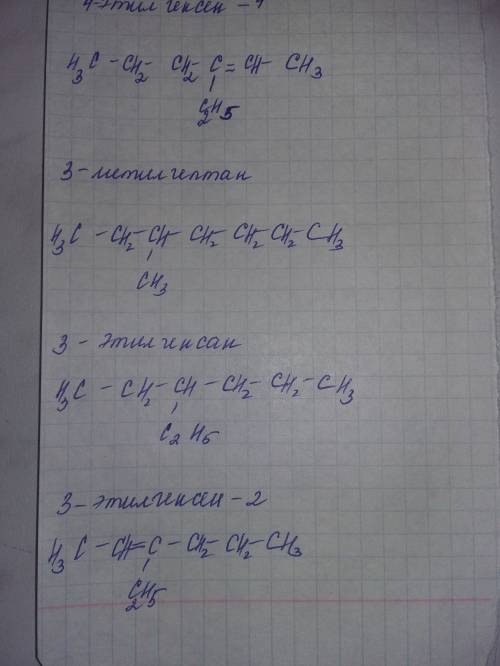 4-этилгексен-
H3C - CH2 CH2 - C = CH - CH3
C2H5
3-метилгептан
H3C - CH2 - CH - CH2 - CH2 - CH2 - CH3
CH3
3 - этилгексан
H3C - CH2 - CH - CH2 - CH2 - CH3
C2H5
3-этилгексен-2
H3C - CH = C - CH2 - CH2 - CH3
C2H5